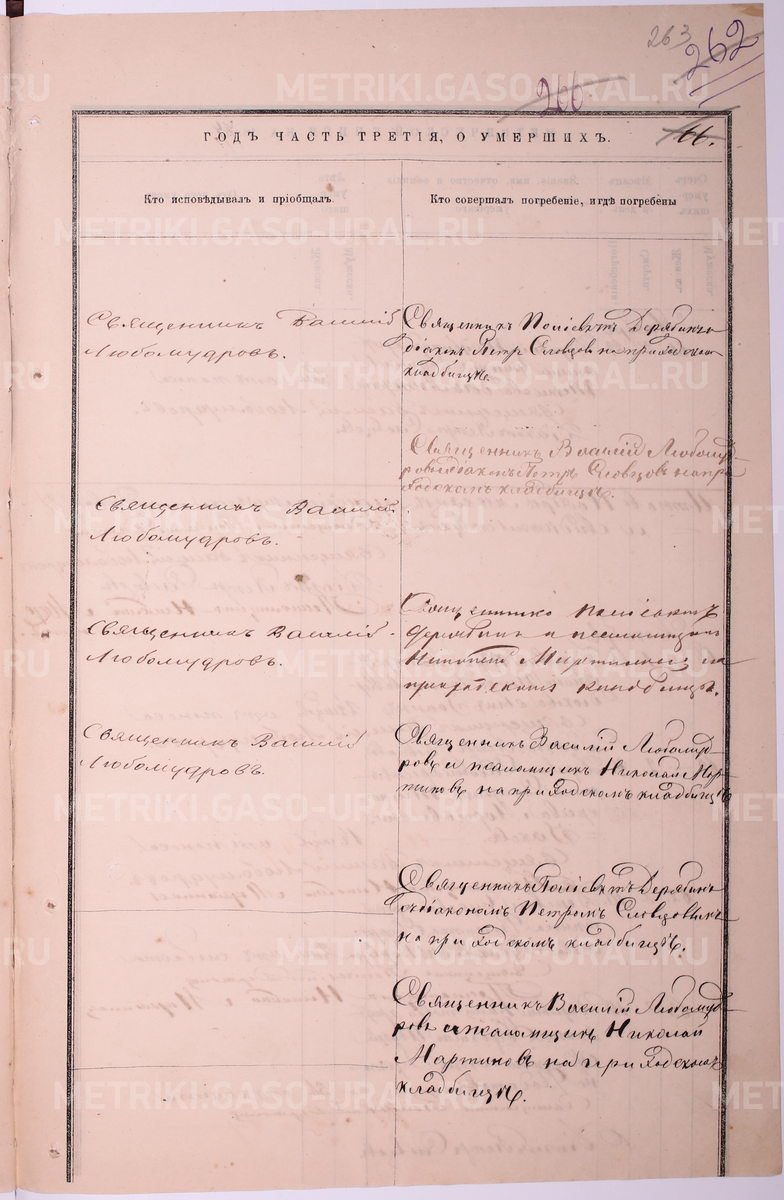 263
262
200
ГОДЪ ЧАСТЬ ТРЕТІЯ, О УМЕРШИХЪ.
66.
Кто исповѣдывалъ и пріобщалъ.
Кто совершалъ погребеніе, и гдѣ погребены
Священникъ Василій
Любомудровъ.
Священникъ Поліевктъ Дерябинъ
діаконъ Петр Словцов на приходском
кладбищѣ.
Священникъ Василій Любомуд-
ровъ діаконъ Петръ Словцовъ на при-
ходскомъ кладбищѣ.
Священникъ Василій
Любомудровъ.
Священникъ Поліевктъ
Дерябинъ и псаломщикъ
Николай Мартиновъ на
приходскомъ кладбищѣ.
Священникъ Василій
Любомудровъ.
Священникъ Василій
Любомудровъ.
Священникъ Василій Любомуд-
ровъ и псаломщикъ Николай Мар-
тиновъ на приходскомъ кладбищѣ
Священникъ Поліевктъ Дерябинъ
съ діакономъ Петромъ Словцовымъ
на приходскомъ кладбищѣ.
Священникъ Василій Любомуд-
ровъ псаломщикъ Николай
Мартиновъ на приходскомъ
кладбищѣ.
METRIKI.GASO-URAL.RU